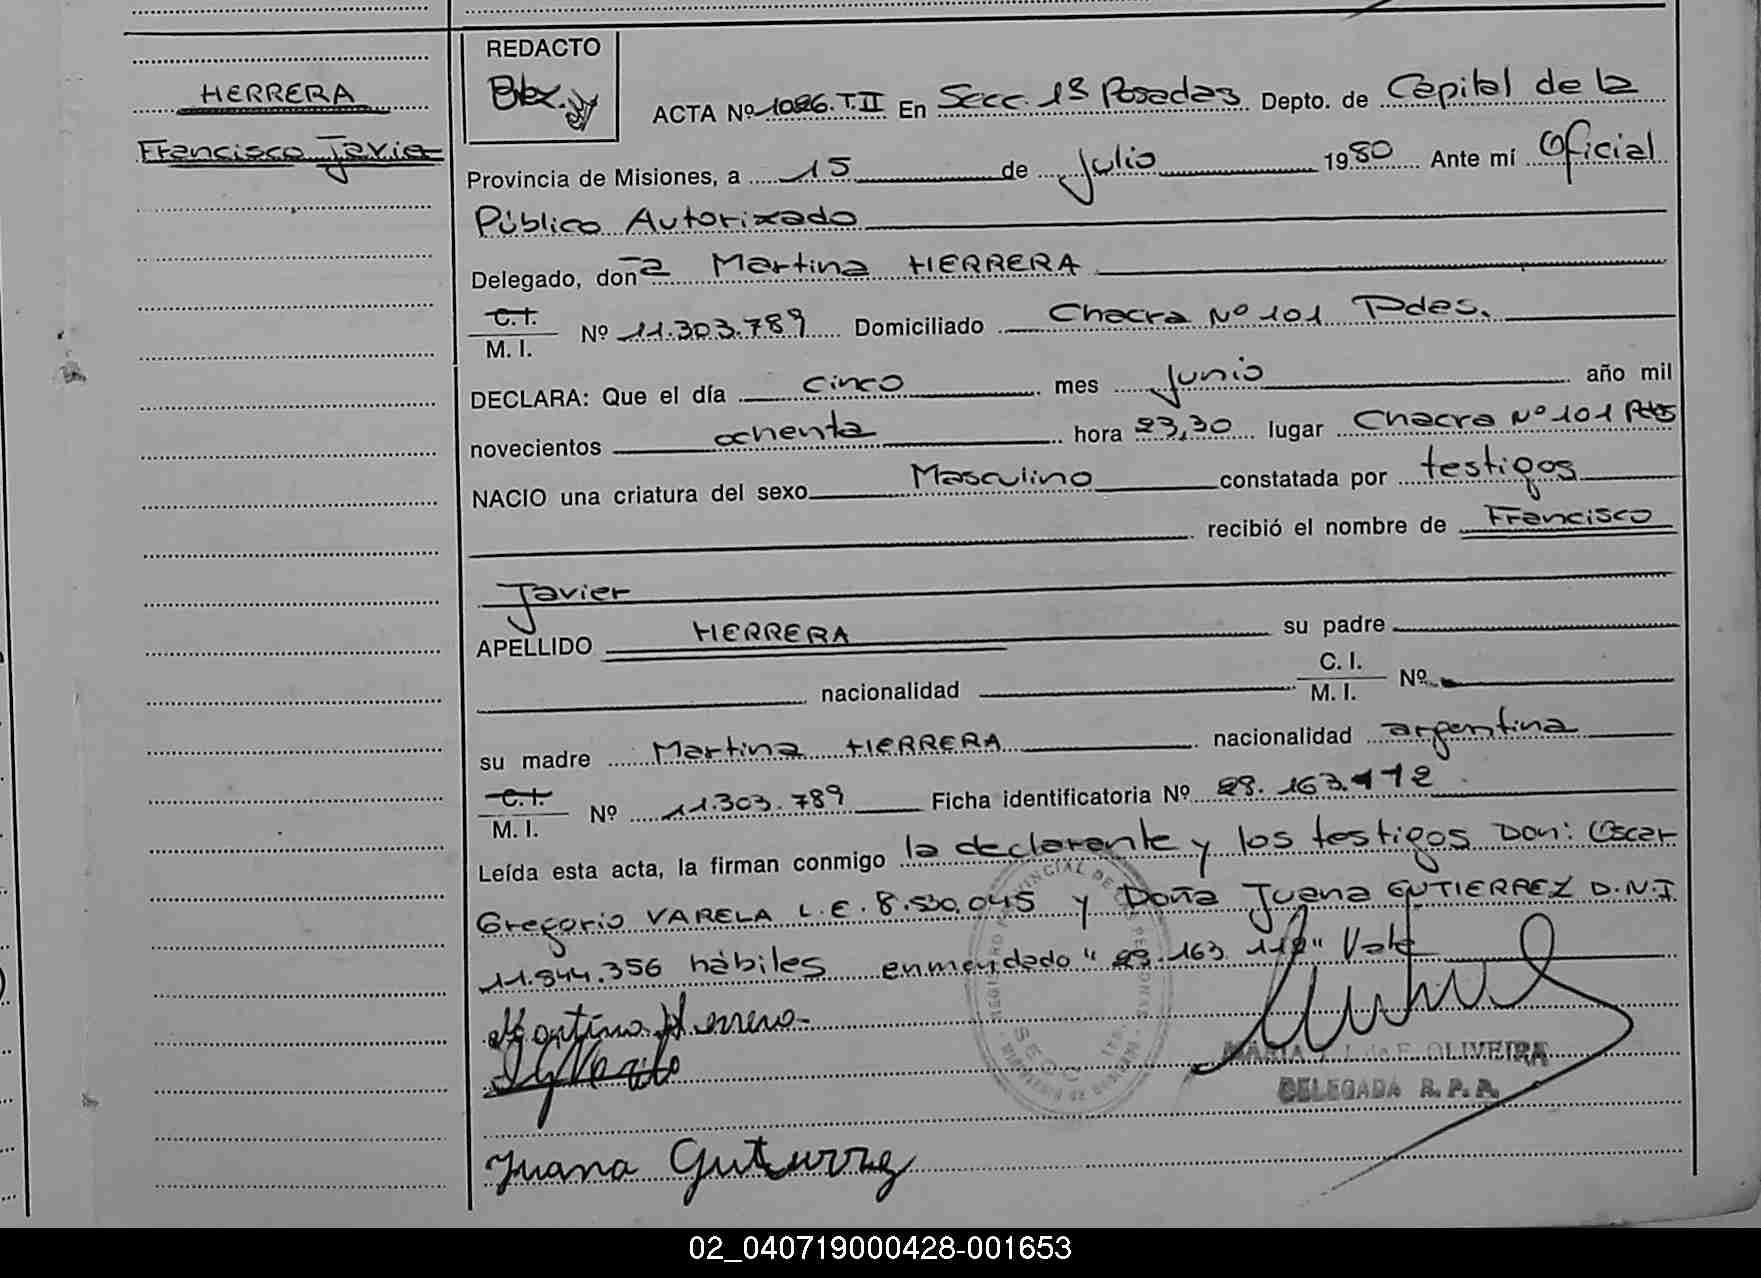 HERRERA
Francisco Javier
REDACTO
ACTA Nº 1086. T. II En Secc. 1ª Posadas Depto. de Capital de la
Provincia de Misiones, a 15 de Julio 1980 Ante mí Oficial
Público Autorizado
Delegado, don -a Martina HERRERA
C.I. / M. I. Nº 11.303.789 Domiciliado Chacra Nº 101 Pdas.
DECLARA: Que el día cinco mes Junio año mil
novecientos ochenta hora 23,30 lugar Chacra Nº 101 Pdas
NACIO una criatura del sexo Masculino constatada por testigos
recibió el nombre de Francisco
Javier
APELLIDO HERRERA su padre
nacionalidad C. I. / M. I. Nº
su madre Martina HERRERA nacionalidad argentina
C.I. / M. I. Nº 11.303.789 Ficha identificatoria Nº 28.163.112
Leída esta acta, la firman conmigo la declarante y los testigos Don: Oscar
Gregorio VARELA L.E. 8.530.045 y Doña Juana GUTIERREZ D.N.I
11.844.356 hábiles enmendado " 28.163.112" Vale
Martina Herrera
MARIA OLIVEIRA
DELEGADA R. P. P.
Juana Guturrez
02_040719000428-001653